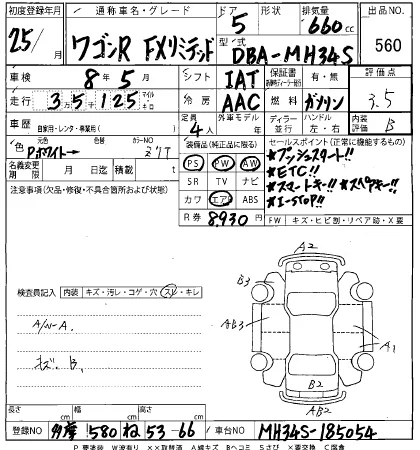 初度登録年月 通称車名・グレード ドア 形状 排気量 出品NO.
25/ 月 ワゴンR FXリミテッド 5 660 cc 560
型式 DBA-MH34S
車検 8年5月 シフト IAT 保証書 有・無 評価点
走行 35千125 マイル キロ 冷房 AAC 燃料 ガソリン 3.5
車歴 自家用・レンタ・事業用( ) 定員 4人 外車モデル 年 ディーラー 並行 ハンドル 左・右 内装 B
色 元色 色替 カラーNO
Pホワイト→ Z7T
装備品(純正品に限る) セールスポイント(正常に機能するもの)
PS PW AW ★プッシュスタート!!
名義変更期限 月 日迄 積載 t SR TV ナビ ★ETC!!
注意事項(欠品・修復・不具合箇所および状態) カワ エアB ABS ★スマートキー!! ★スペアキー!!
★I-STOP!!
R券 8,930円 FW キズ・ヒビ割・リペア跡・X要
検査員記入 内装 キズ・汚レ・コゲ・穴 スレ・キレ
A2
B3
AB3
A1
B2
AB2
キズ. B.
長さ cm 幅 cm 高さ cm
登録NO 多摩 580 ね 53-66 車台NO MH34S-185054
P 要塗装 W波有り ××取替済 A線キズ Bヘコミ Sさび ×要交換 C腐食